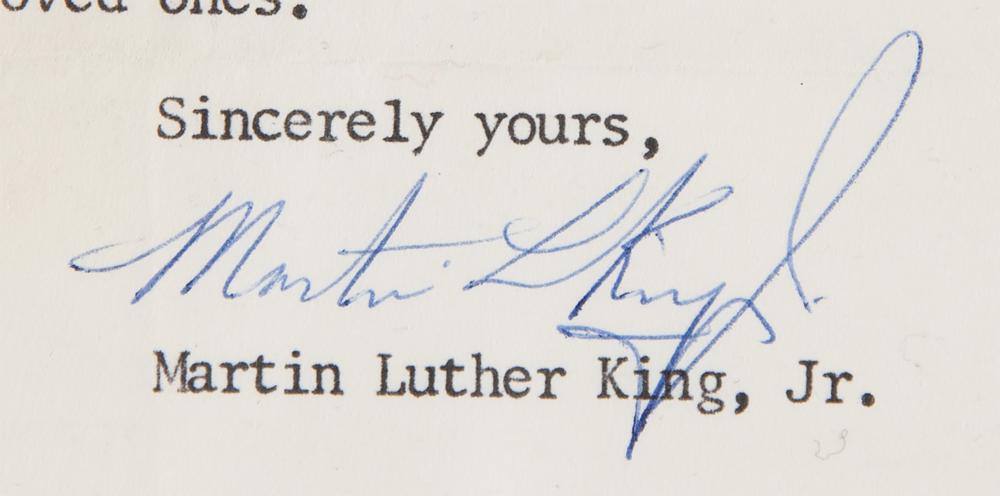 oved ones.
Sincerely yours,
Martin L King Jr.
Martin Luther King, Jr.